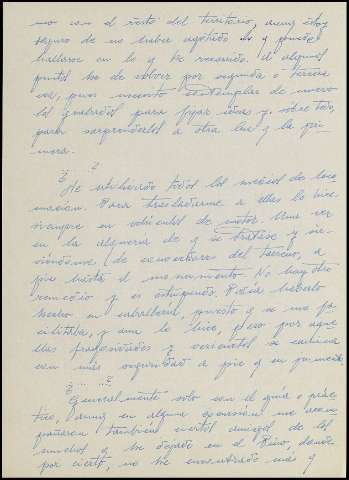 mos con el resto del territorio, aunq estoy
seguro de no haber agotado lo q puede
hallarse en lo q he recorrido. A algunos
puntos he de volver por segunda o tercera
vez, pues necesito contemplar de nuevo
los grabados para fijar ideas y, sobre todo,
para sorprenderlos a otra luz q la pri-
mera.
¿ ?
He utilizado todos los medios de loco
mocion. Para trasladarme a ellos lo hice
siempre en vehiculos de motor. Una vez
en la alquería de q se tratase y sir-
viéndome de conocedores del terreno, a
pie hasta el monumento. No hay otro
remedio y es estupendo. Podía haberlo
hecho en caballerias, puesto q se me fa-
cilitaba, y aun lo hice, pero por aque
llas fragosidades y vericuetos se camina
con más seguridad a pie q en jumento.
¿ ... ?
Generalmente solo con el guía o prác
tico, aunq en alguna ocasion me acom
pañaron tambien ciertos amigos de los
muchos q he dejado en el Pino, donde
por cierto, no he encontrado más q